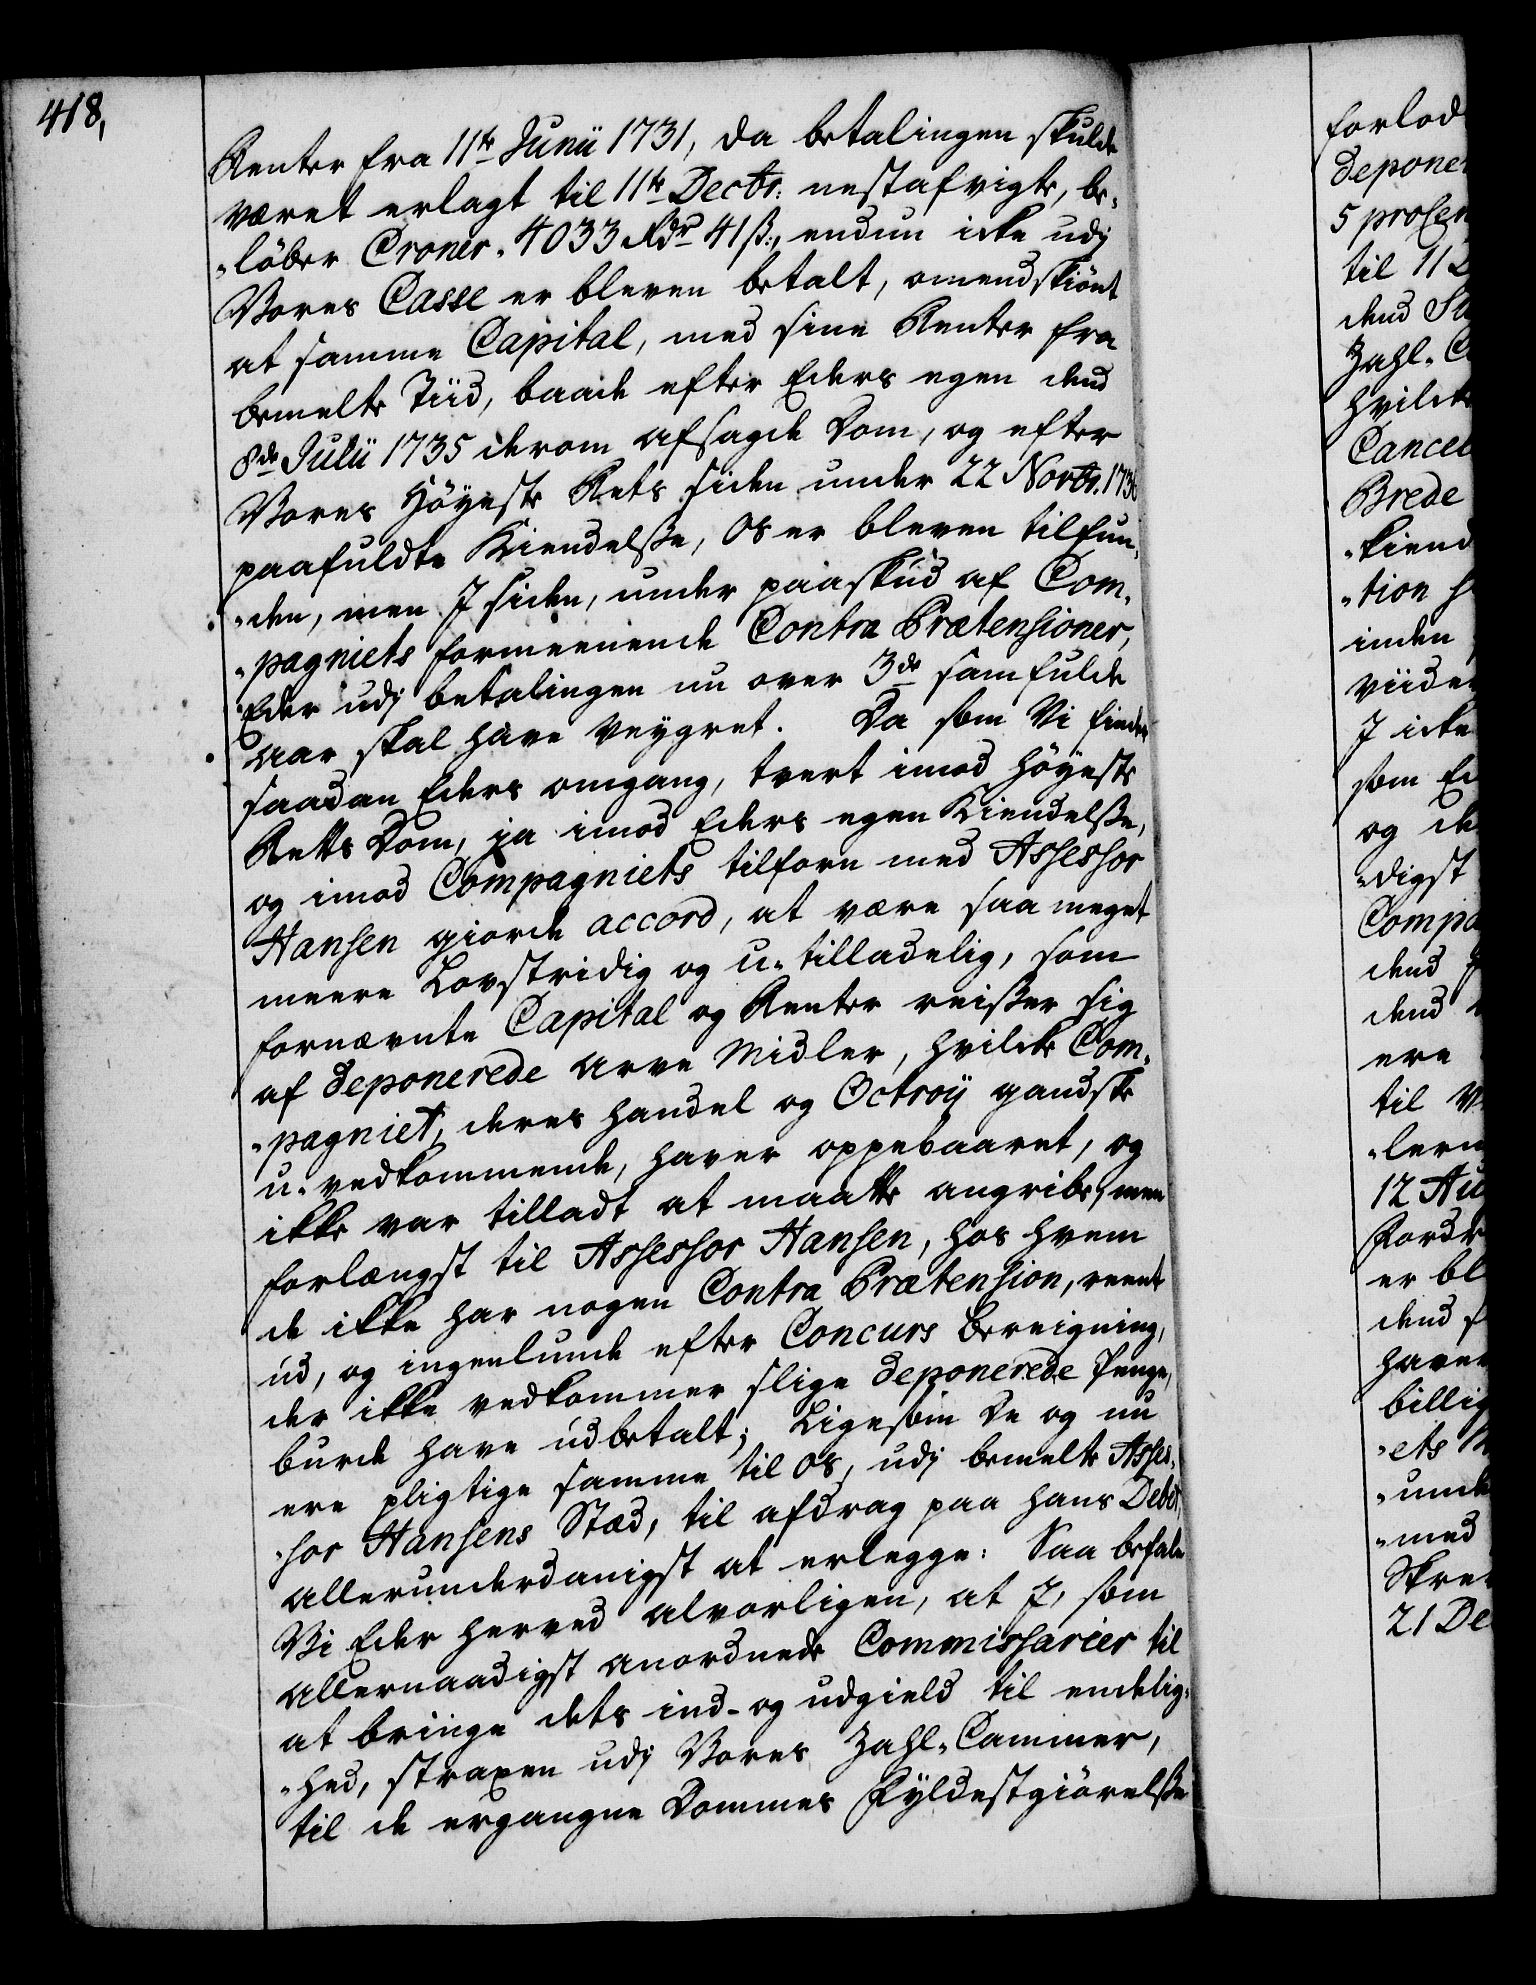 418,
Renter fra 11te Junii 1731, da betalingen skulde
været erlagt til 11te Decbr: nestafvigte, be-
-löber Croner. 4033 Rdr 41 ß:, endnu icke udj
Vores Casse er bleven betalt, omendskiönt
at samme Capital, med sine Renter fra
bemelte Tiid, baade efter Eders egen dend
8de Julii 1735 derom afsagde Dom, og efter
Vores Höyeste Rets siden under 22 Novbr. 1736
paafuldte Kiendelsße, Os er bleven tilfun-
-den, men J siden, under paaskud af Com-
-pagniets formeenende Contra Prætensioner,
Eder udj betalingen nu over 3de samfulde
aar skal have veygret. Da som Vi finde
saadan Eders omgang, tvert imod höyeste
Retts Dom, ja imod Eders egen Kiendelße,
og imod Compagniets tilforn med Assessor
Hansen giorde accord, at være saa meget
meere Lovstridig og u-tilladelig, som
fornævnte Capital og Renter reißer sig
af deponerede arve Midler, hvilcke Com-
-pagniet, deres handel og Octroÿ gandske
u-vedkommende, haver oppebaaret, og
ikke var tilladt at maatte angribe, men
forlængst til Assessor Hansen, hos hvem
de ikke har nogen Contra Prætension, reent
ud, og ingenlunde efter Concurs Bereigning,
der ikke vedkommer slige deponerede Penge,
burde have udbetalt; Ligesom De og nu
ere pligtige samme til Os, udj bemelte Asses-
-sor Hansens Stæd, til afdrag paa hans Debet,
allerunderdanigst at erlegge: Saa befale
Vi Eder herved alvorligen, at J, som
allernaadigst anordnede Commissarier til
at bringe dets ind- og udgield til endelig-
-hed, straxen udj Vores Zahl-Cammer,
til de ergangne Dommes Fyldestgiörelße
forlod
deponer
5 prosen
til 11 D
dend
Zahl-C
hvilcke
Cancel
Brede
-kiend
-tion
inden
viider
J icke
som Ed
og de
-digst
Compa
dend
dend
ere
til V
-lern
12 Au
Fordr
er bl
dend
haver
billig
-ets
-unde
-med
Skre
21 De